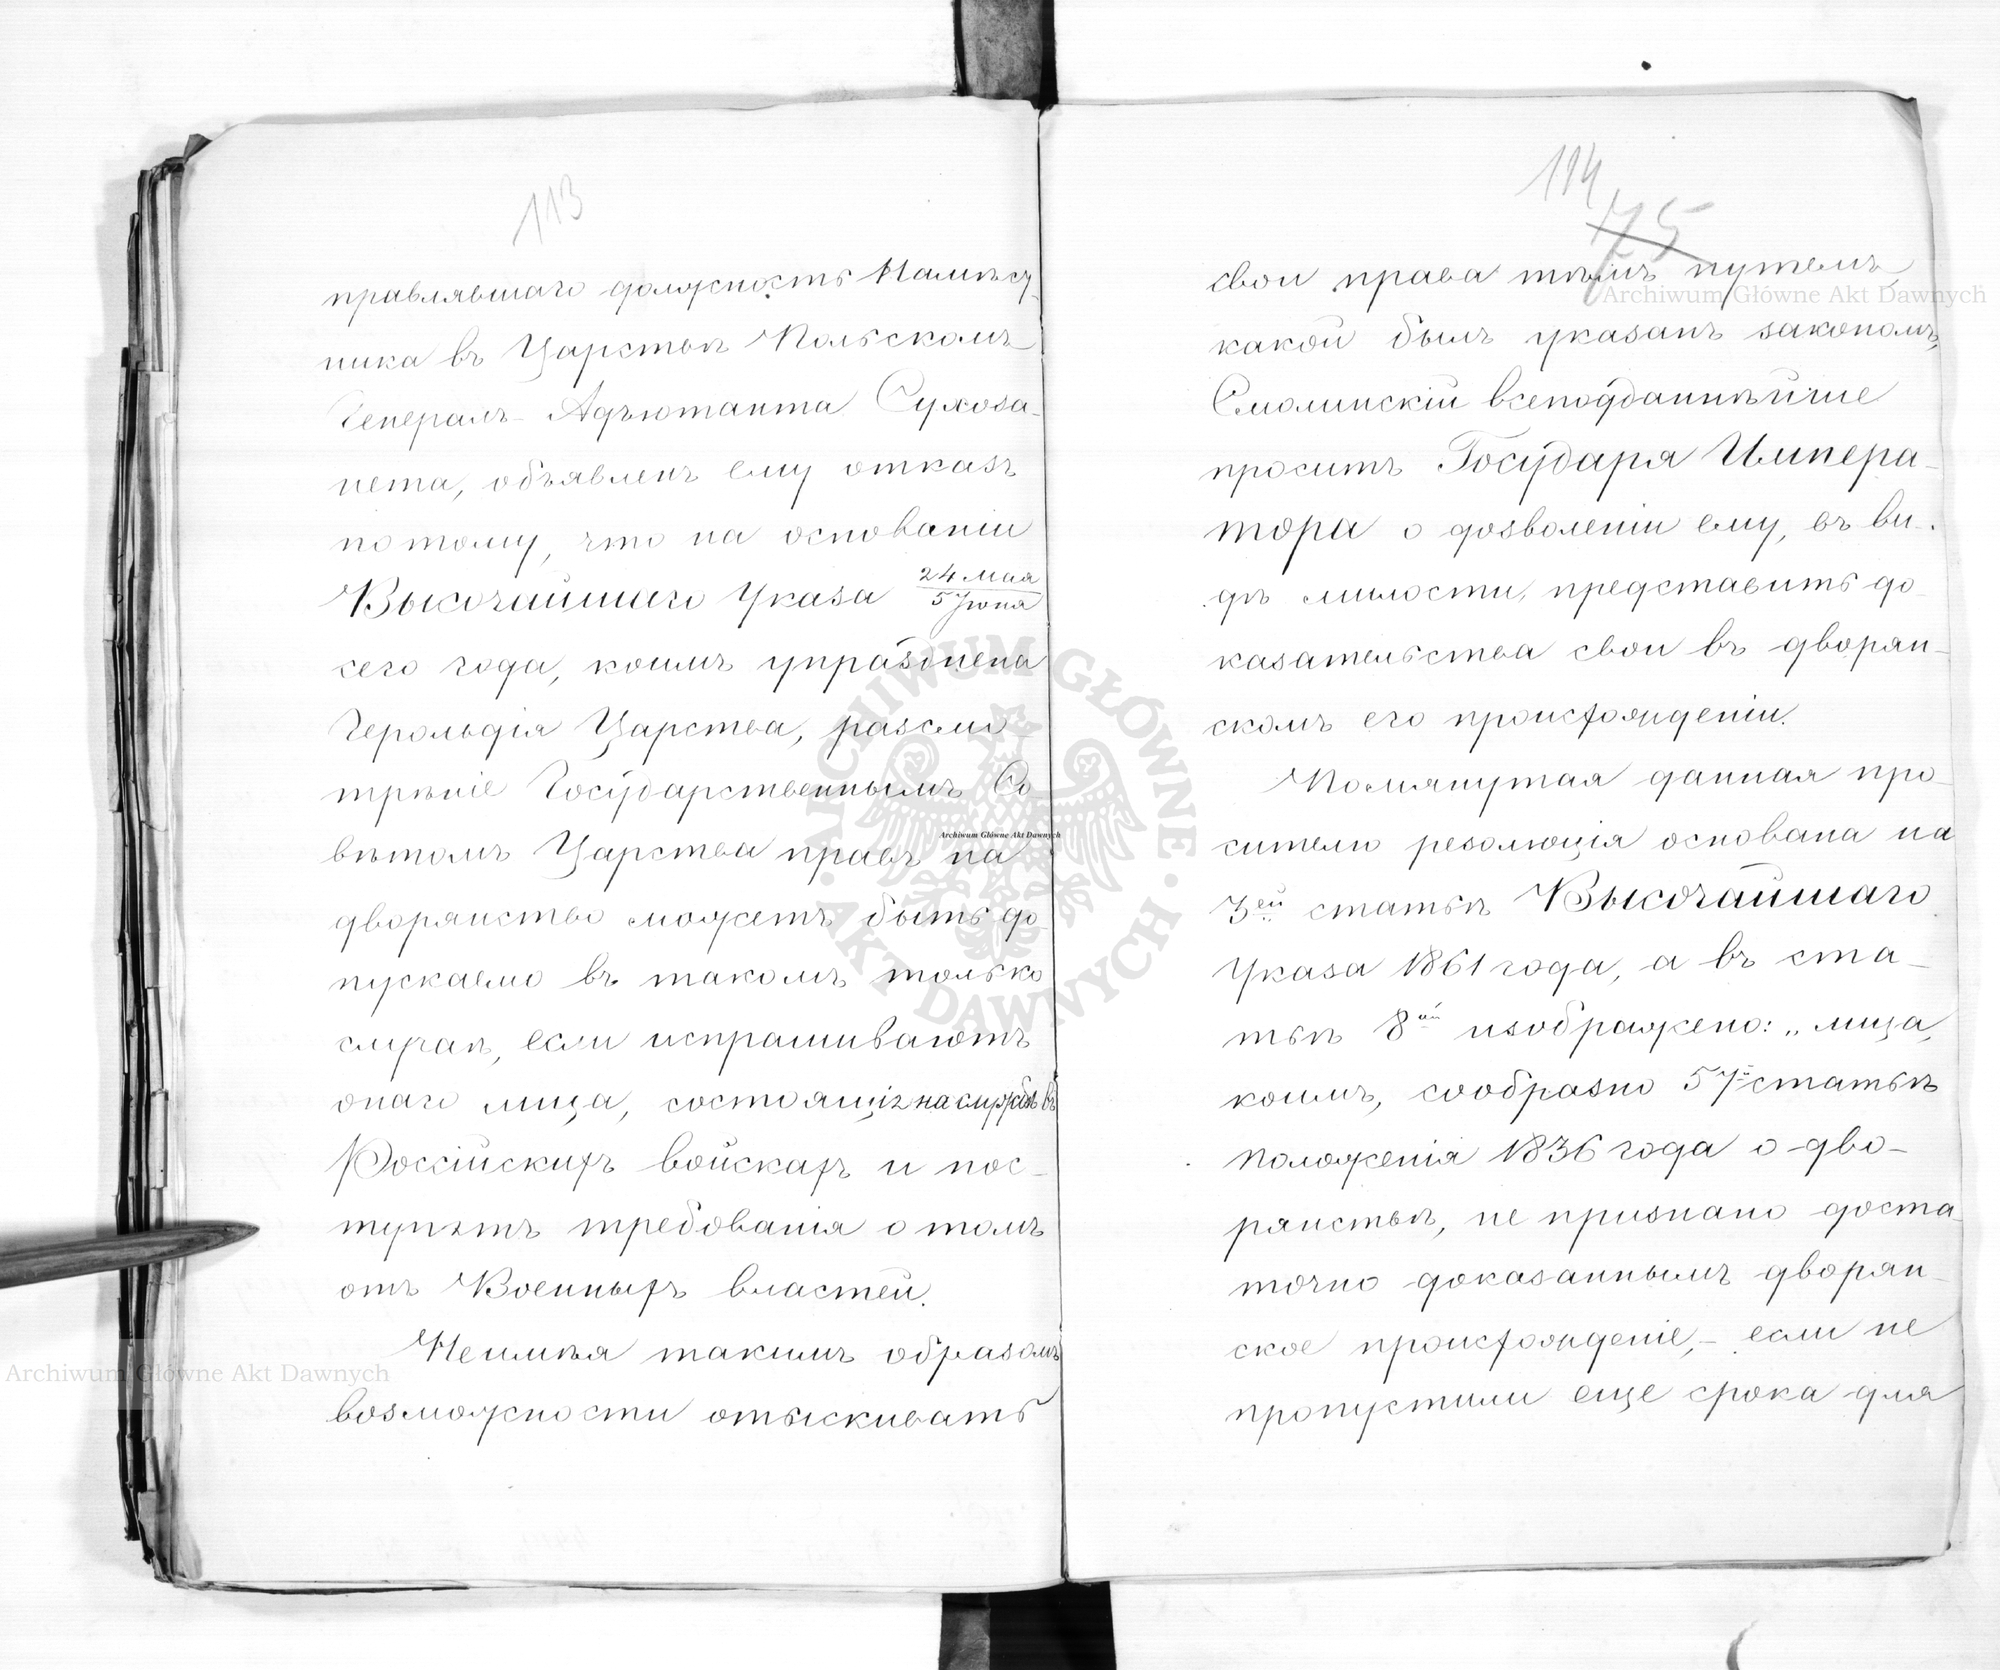 113
правлявшаго должность Намѣст-
ника въ Царствѣ Польскомъ
Генералъ-Адъютанта Сухоза-
нета, объявленъ ему отказъ
потому, что на основаніи
Высочайшаго Указа 24 Мая/5 Іюня
сего года, коимъ упразднена
Герольдія Царства, разсмо-
трѣніе Государственнымъ Со-
вѣтомъ Царства правъ на
дворянство можетъ быть до-
пускаемо въ такомъ только
случаѣ, если испрашиваютъ
онаго лица, состоящія на службѣ въ
Россійскихъ войскахъ и пос-
тупятъ требованія о томъ
отъ Военныхъ властей.
Не имѣя такимъ образомъ
возможности отыскивать
114
75
свои права тѣмъ путемъ
какой былъ указанъ закономъ,
Смолинскій всеподданнѣйше
проситъ Государя Импера-
тора о дозволеніи ему, въ ви-
дѣ милости, представить до-
казательства свои въ дворян-
скомъ его происхожденіи.
Помянутая данная про-
сителю резолюція основана на
3ей статьѣ Высочайшаго
Указа 1861 года, а въ ста-
тьѣ 8ой изображено: „лица,
коимъ, сообразно 57й статьѣ
положенія 1836 года о дво-
рянствѣ, не признано доста-
точно доказаннымъ дворян-
ское происхожденіе,- если не
пропустили еще срока для
Archiwum Główne Akt Dawnych
Archiwum Główne Akt Dawnych
Archiwum Główne Akt Dawnych
ARCHIWUM GŁÓWNE · AKT DAWNYCH ·